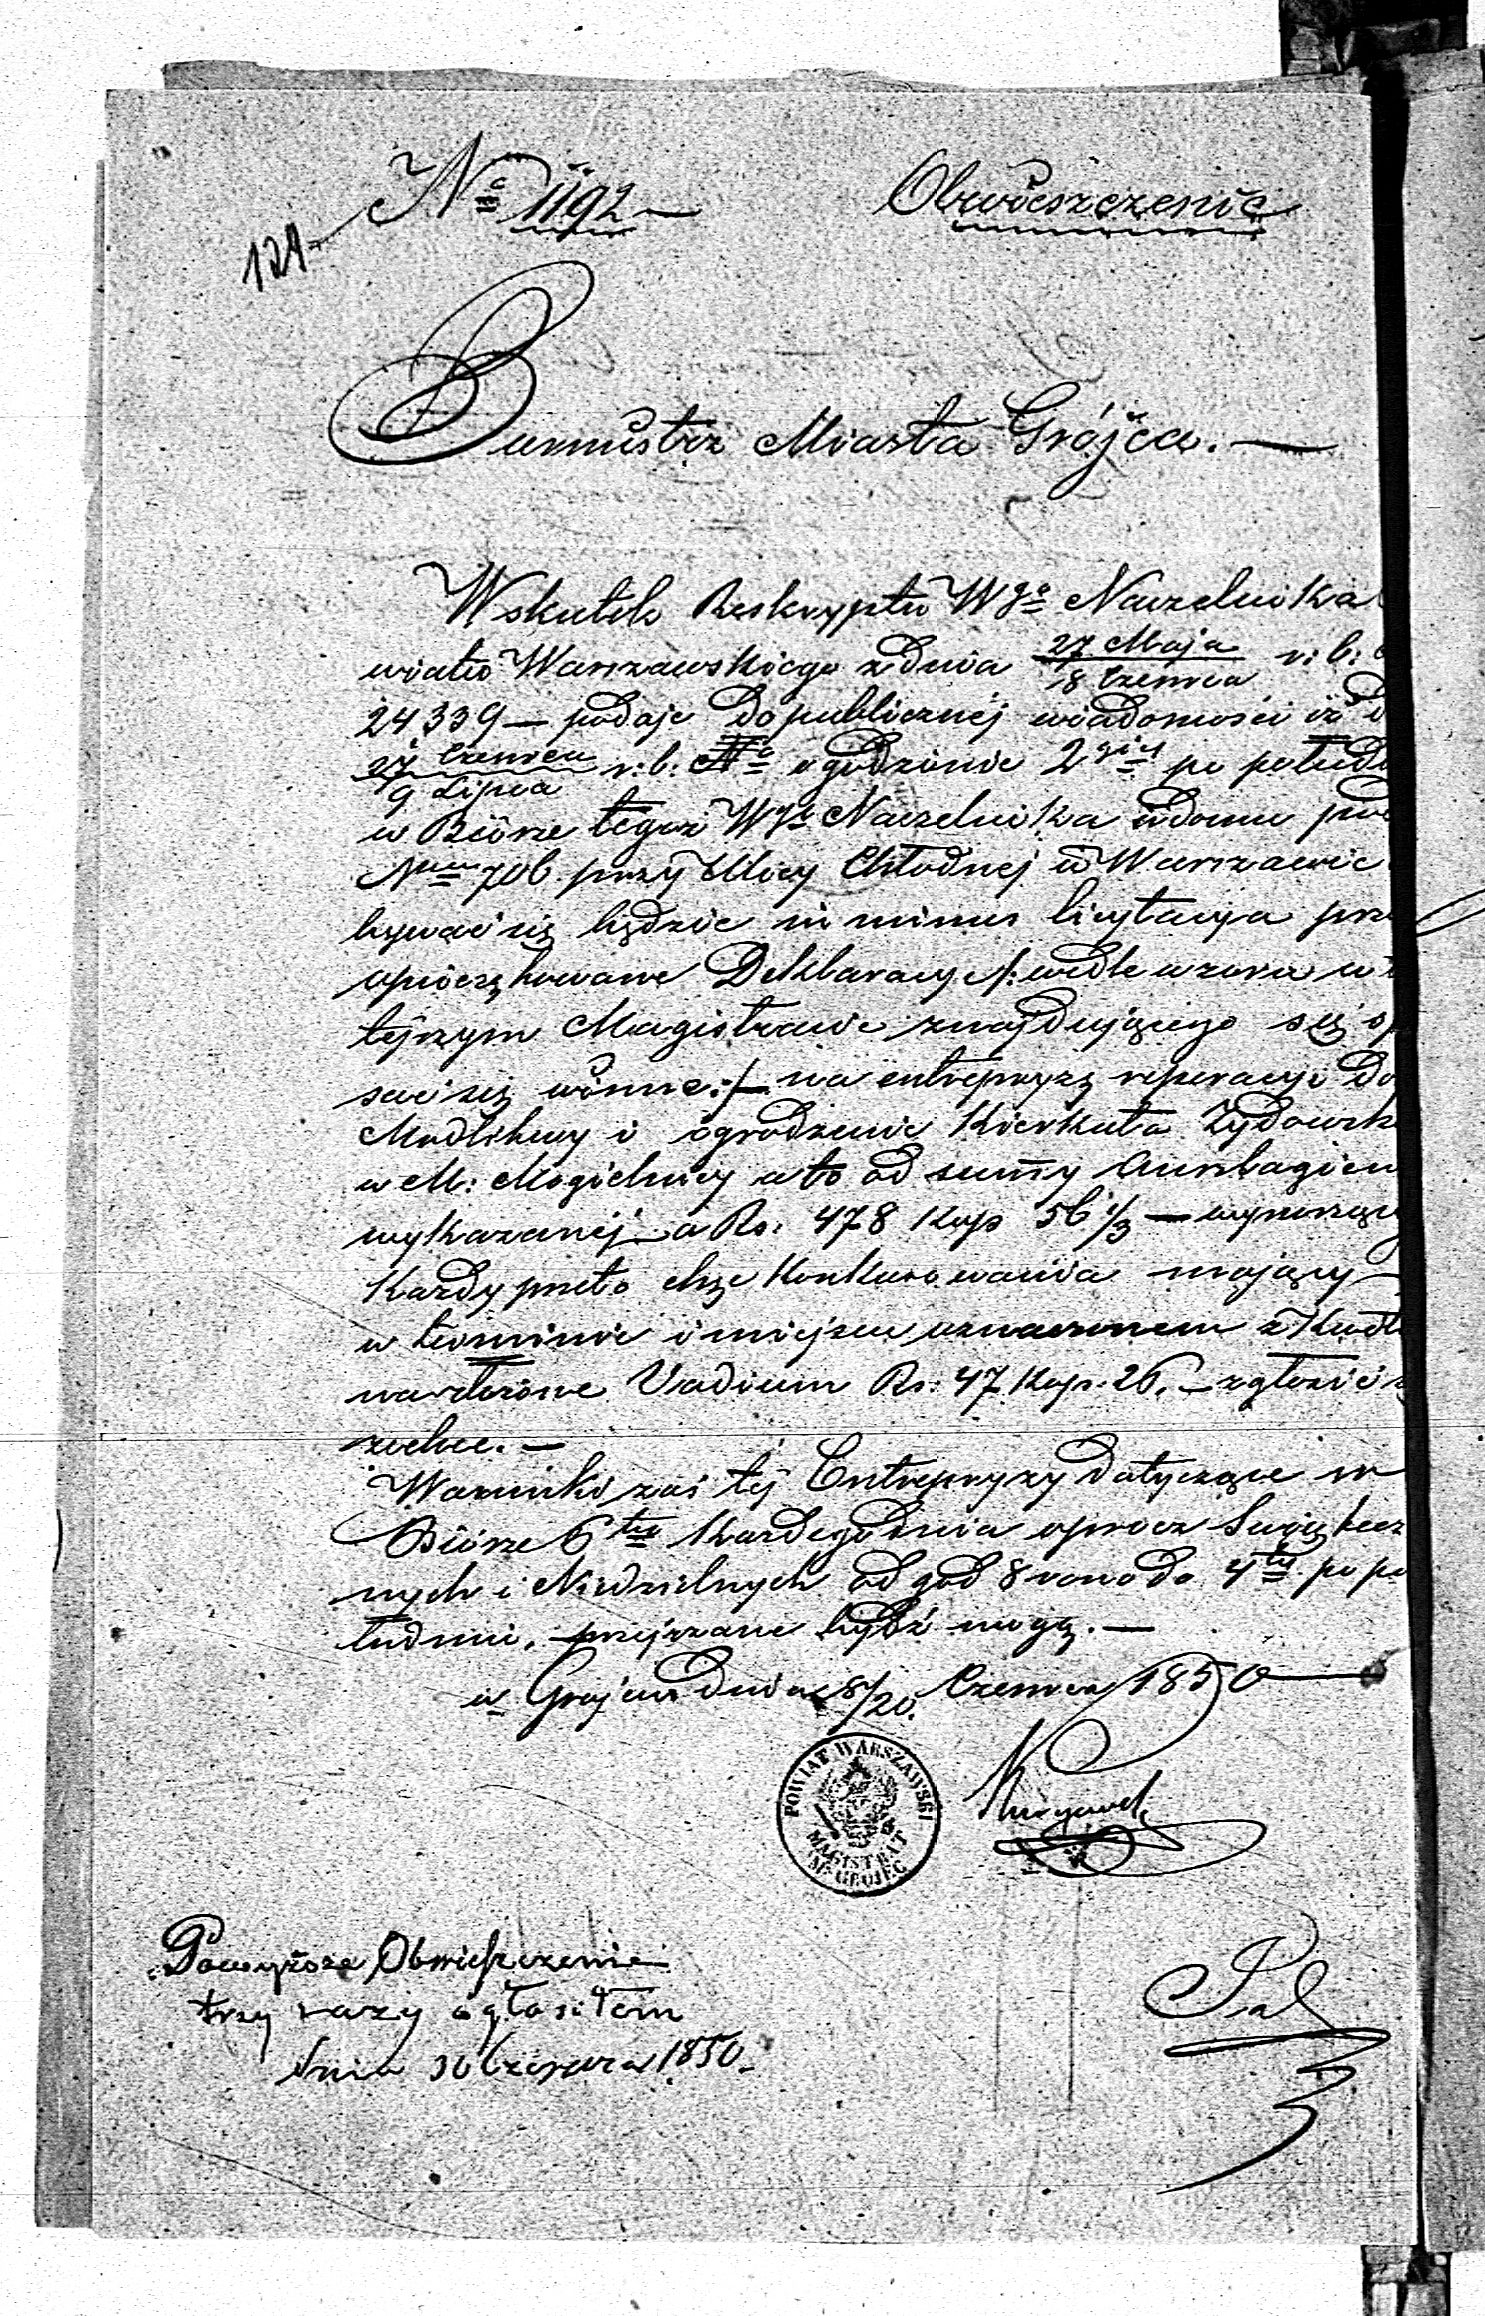 No 1192
Obwieszczenie
129
Burmistrz Miasta Grójca.
Wskutek Reskryptu Wgo Naczelnika
wiatu Warszawskiego z dnia 27 Maja / 8 Czerwca r: b:
24339 — podaje do publicznéj wiadomości iż d
27 Czerwca / 9 Lipca r: b: o godzinie 2giéj po połud
w Biórze tegoż Wgo Naczelnika w domu pod
Nrem 706 przy Ulicy Chłodnéj w Warszawie
bywać się będzie in minus licytacya prz
opieczętowane Deklaracye /: wedle wzoru w t
téjszym Magistracie znajdującego się
sać się winne :/ — na entrepryzę reperacyi Do
Modlitwy i ogrodzenie Kierkuta Żydowsk
w M: Mogielnicy a to od summy Anszlagiem
wykazanéj a Rs: 478 kop 56 1/3 — wynoszące
Każdy przeto chęć konkurowania mający —
w terminie i miejscu oznaczonem z Kwit
Vadium Rs: 47 Kop: 26. — zgłosić s
zechce. —
Warunki zaś téj Entrepryzy dotyczące w
Biórze każdego dnia oprócz Świątecz
nych i Niedzielnych od god 8 rano do 4téj po po
łudniu, przejrzane bydź mogą. —
w Grójcu dnia 8/20 Czerwca 1850
POWIAT WARSZAWSKI
MAGISTRAT
M. GROJEC
Powyższe Obwieszczenie
trzy razy ogłosiłem
dnia 30 Czerwca 1850